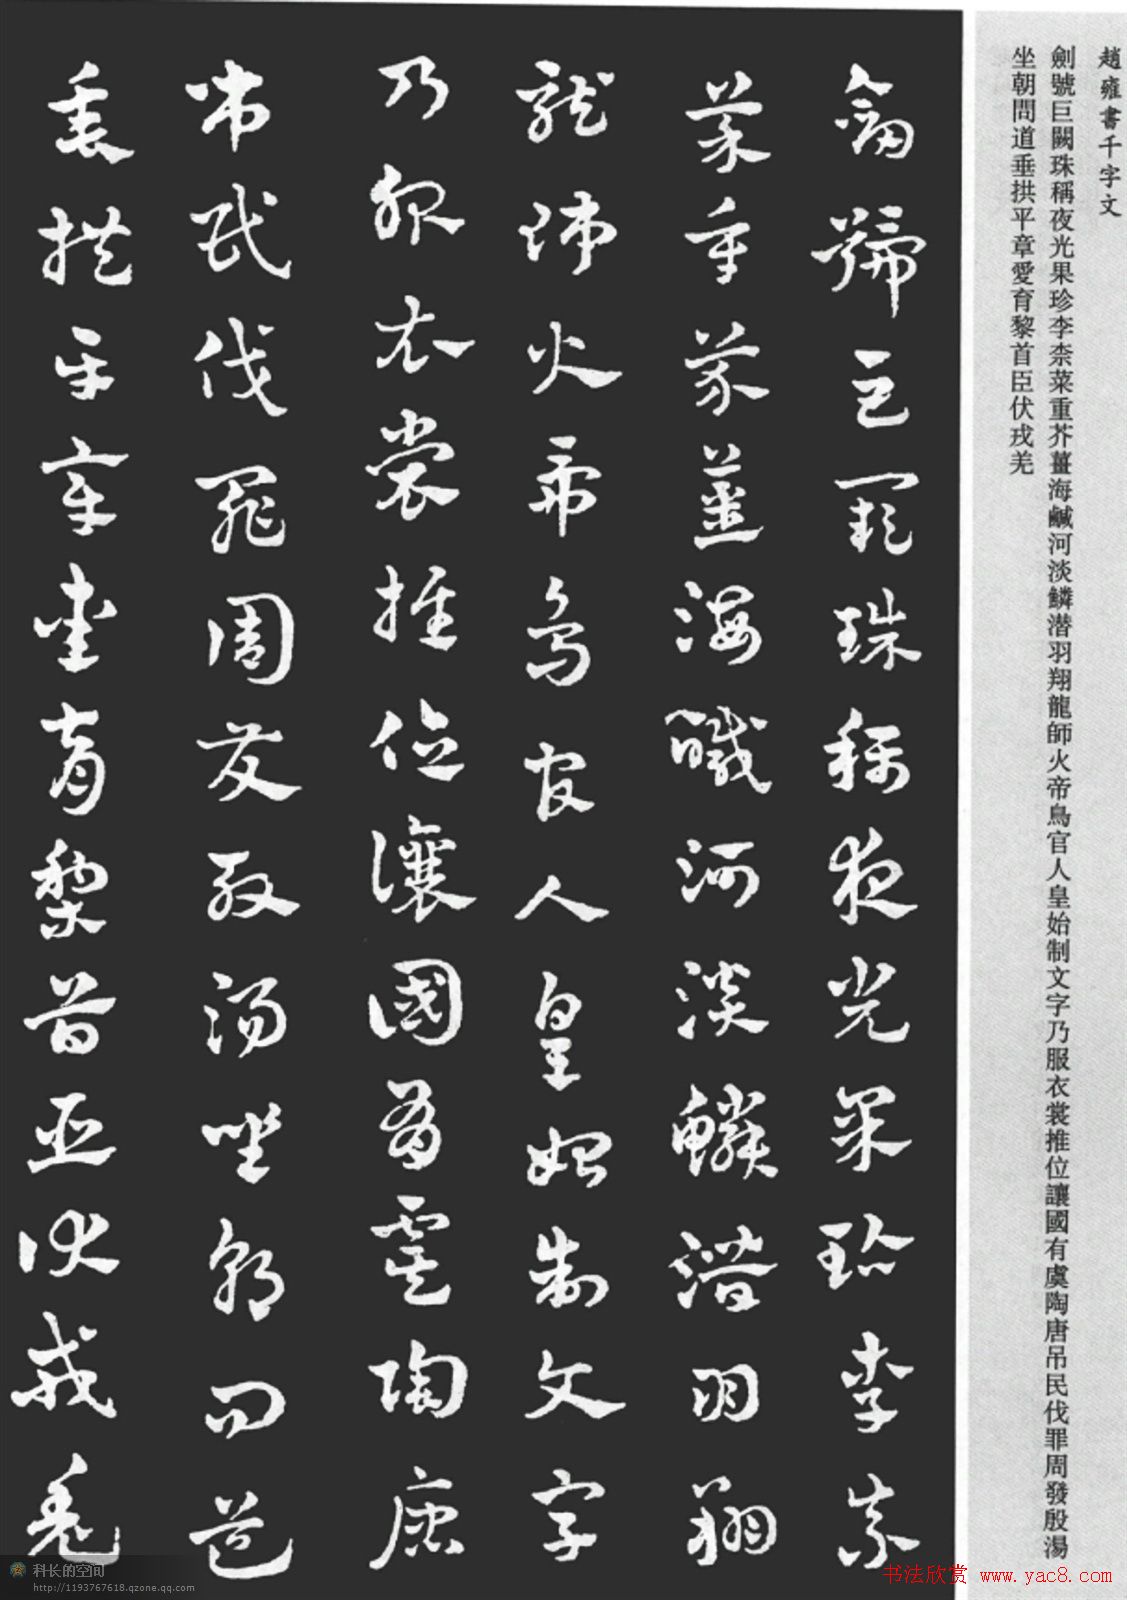 趙雍書千字文
劍號巨闕珠稱夜光果珍李柰菜重芥薑海鹹河淡鱗潜羽翔龍師火帝鳥官人皇始制文字乃服衣裳推位讓國有虞陶唐吊民伐罪周發殷湯
坐朝問道垂拱平章愛育黎首臣伏戎羌
劍號巨闕珠稱夜光果珍李柰
菜重芥薑海鹹河淡鱗潜羽翔
龍師火帝鳥官人皇始制文字
乃服衣裳推位讓國有虞陶唐
吊民伐罪周發殷湯坐朝問道
垂拱平章愛育黎首臣伏戎羌
科长的空间
http://1193767618.qzone.qq.com
书法欣赏 www.yac8.com